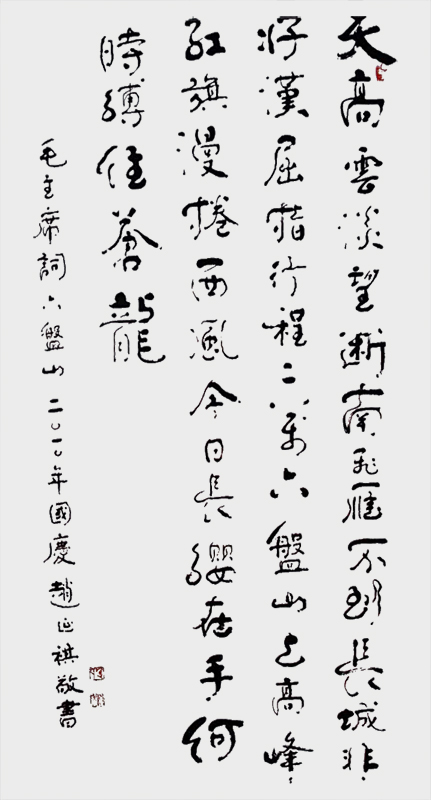 天高雲淡望斷南飛雁不到長城非
好漢屈指行程二萬六盤山上高峰
紅旗漫捲西風今日長纓在手何
時縛住蒼龍
毛主席詞六盤山二〇一〇年國慶趙延祺敬書